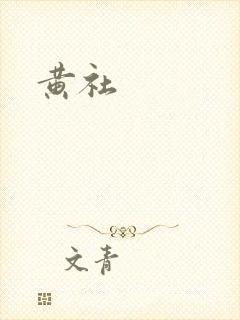 黄社
文青